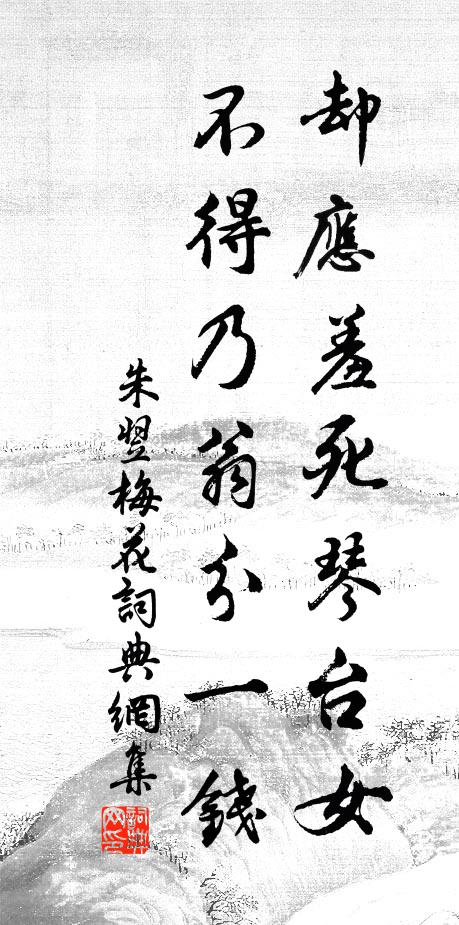 却應羞死琴台女
不得乃翁分一錢
朱翌梅花詞典網集